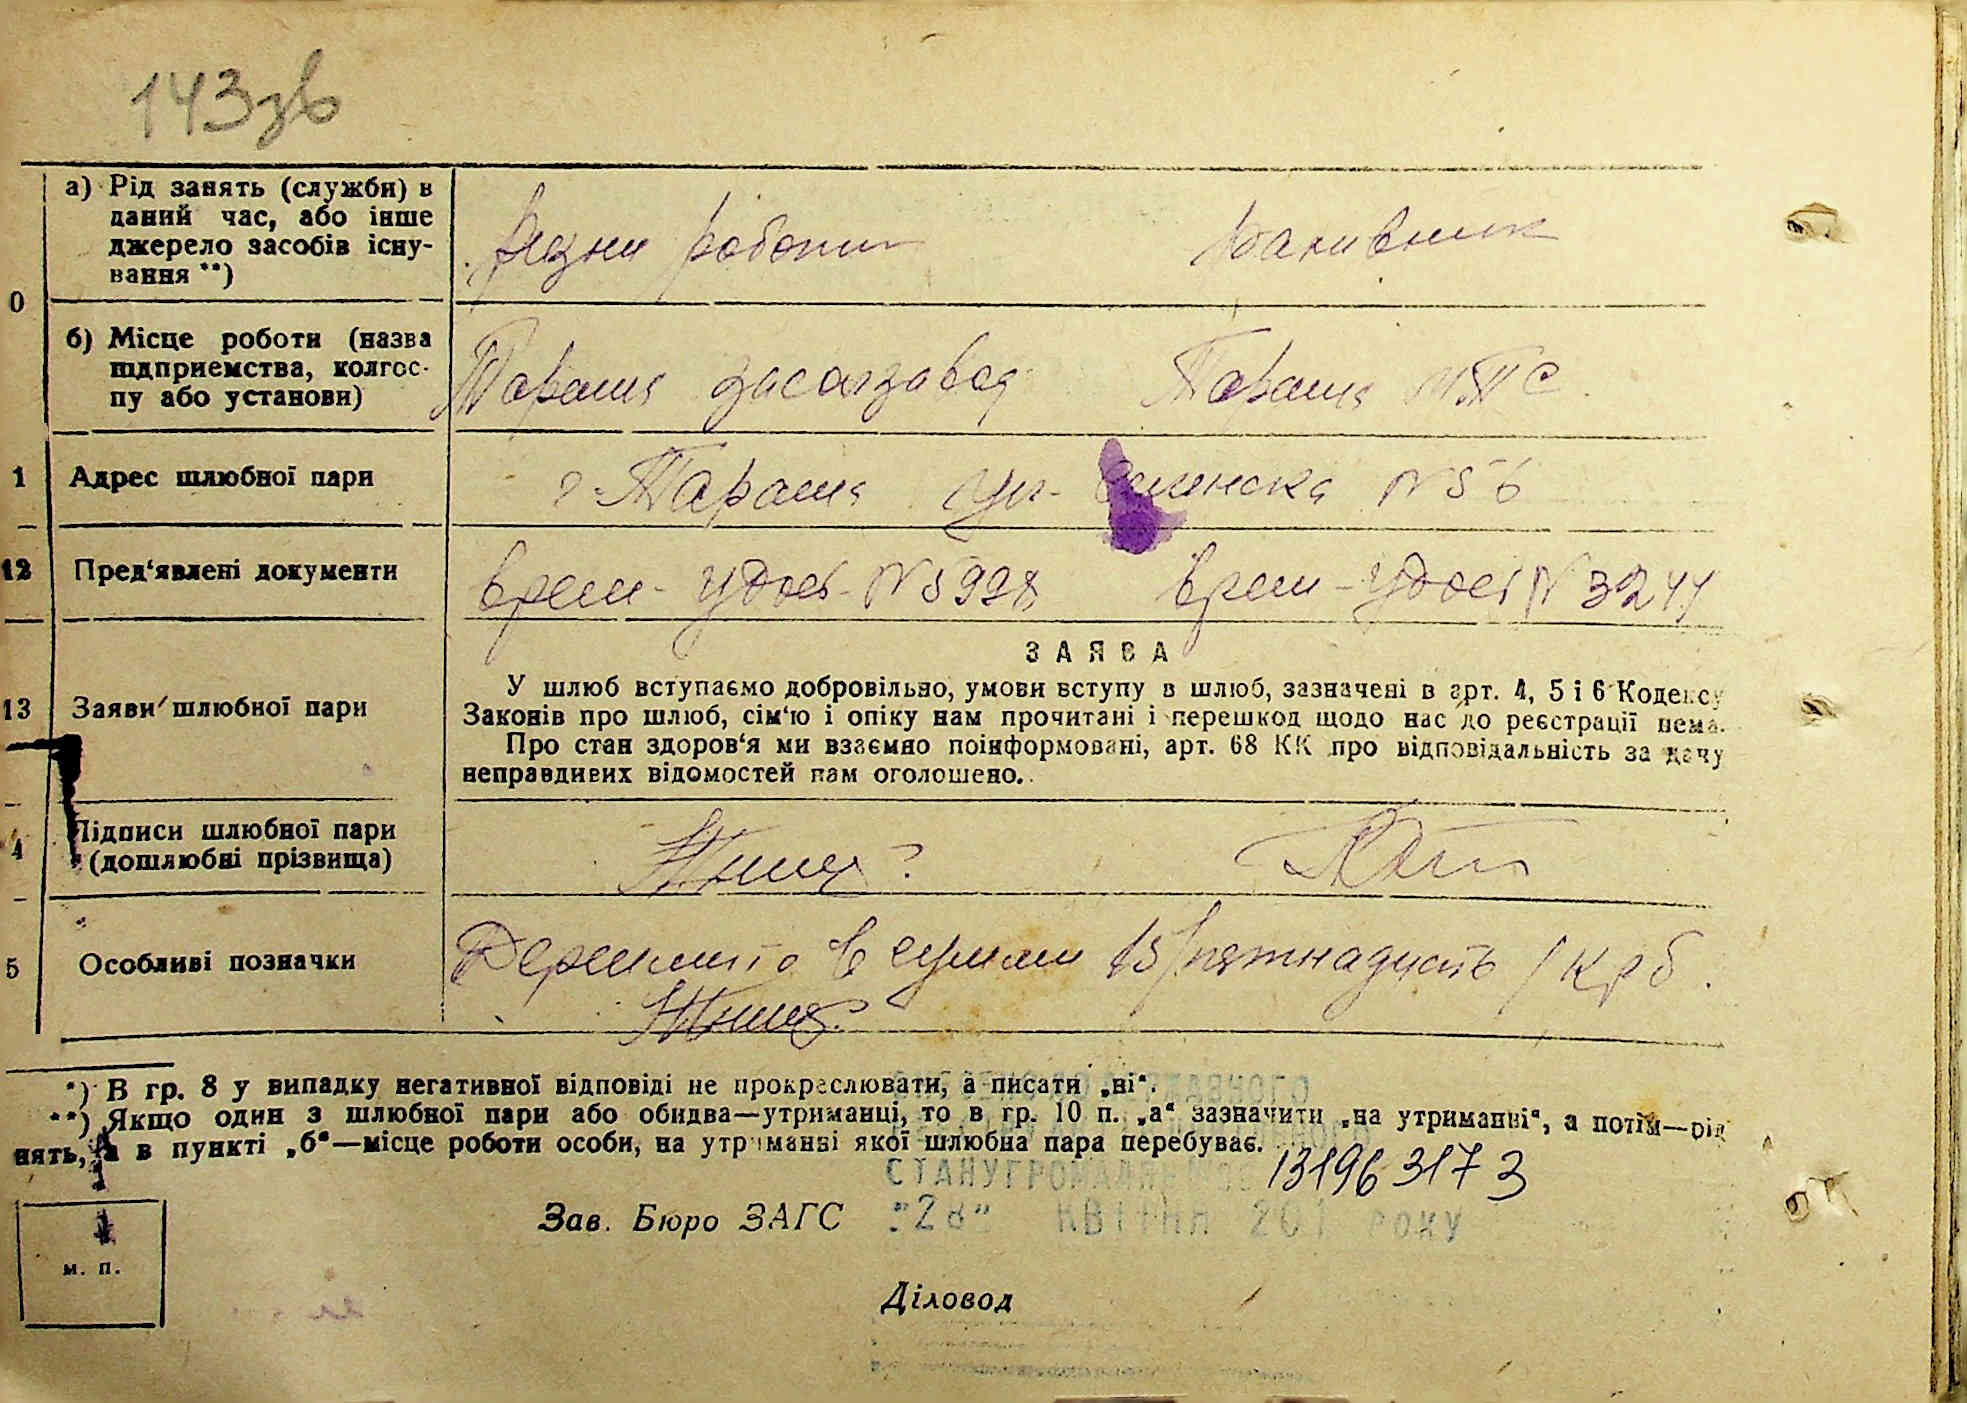 143зв
а) Рід занять (служби) в
даний час, або інше
джерело засобів існу-
вання **)
різни роботи
0
б) Місце роботи (назва
підприємства, колгос-
пу або установи)
Тараща
Тараща МТС
1 Адрес шлюбної пари
г. Тараща ул. №56
12 Пред‘явлені документи
врем- удост- №5998 врем-удост №3244
ЗАЯВА
13 Заяви шлюбної пари
У шлюб вступаємо добровільно, умови вступу в шлюб, зазначені в арт. 4, 5 і 6 Кодексу
Законів про шлюб, сім‘ю і опіку нам прочитані і перешкод щодо нас до реєстрації нема.
Про стан здоров‘я ми взаємно поінформовані, арт. 68 КК про відповідальність за дачу
неправдивих відомостей нам оголошено.
4 Підписи шлюбної пари
(дошлюбні прізвища)
5 Особливі позначки
в сумми 15 /пятнадцать/ крб.
*) В гр. 8 у випадку негативної відповіді не прокреслювати, а писати „ні“.
**) Якщо один з шлюбної пари або обидва—утриманці, то в гр. 10 п. „а“ зазначити „на утриманні“, а потім—рід
нять, а в пункті „б“—місце роботи особи, на утриманні якої шлюбна пара перебуває.
131963173
Зав. Бюро ЗАГС
"28" КВІТНЯ 201 РОКУ
м. п.
Діловод